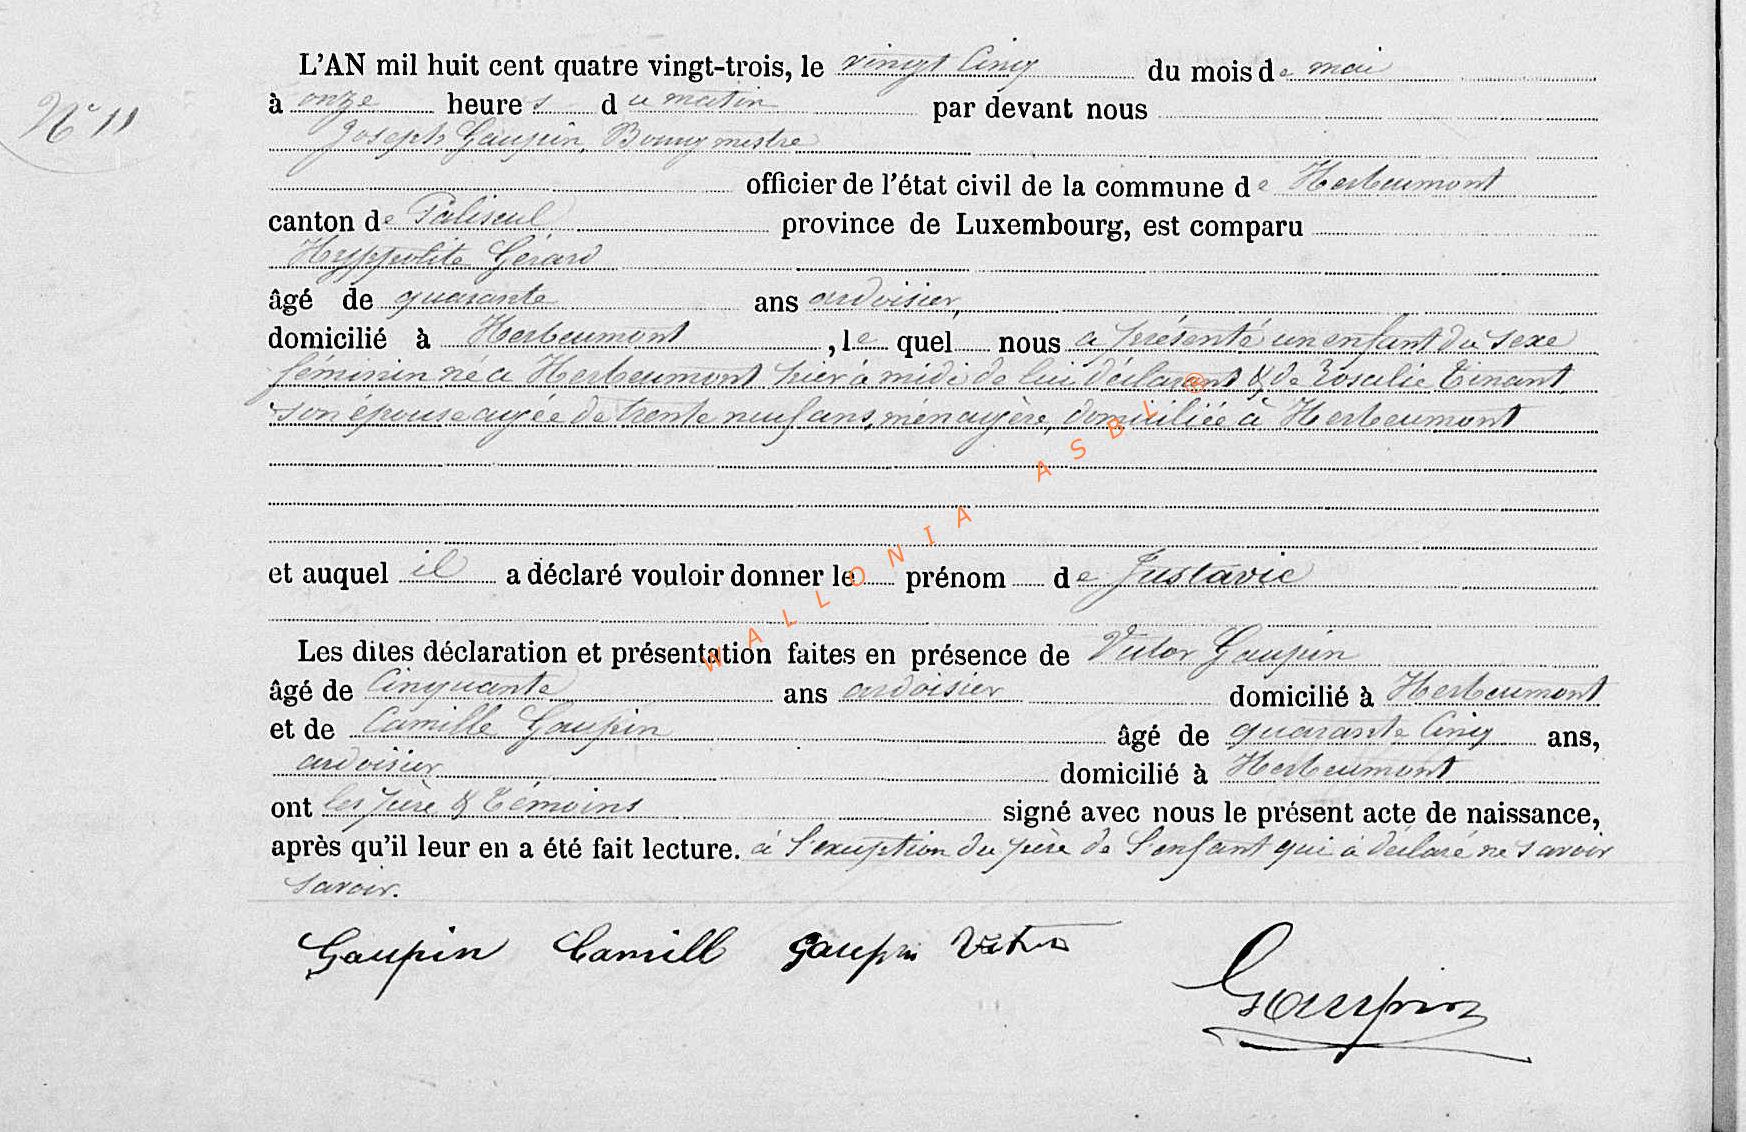 L'AN mil huit cent quatre vingt-trois, le vingt cinq du mois de mai
N° 11
à onze heures du matin par devant nous
Joseph Gaupin, Bourgmestre
officier de l'état civil de la commune de Herbeumont
canton de Paliseul province de Luxembourg, est comparu
Hyppolite Gérard
âgé de quarante ans ardoisier,
domicilié à Herbeumont, le quel nous a présenté un enfant du sexe
féminin né à Herbeumont hier à midi de lui déclarant & de Rosalie Tinant
son épouse agée de trente neuf ans, ménagère, domiciliée à Herbeumont
et auquel il a déclaré vouloir donner le prénom de Justavie
Les dites déclaration et présentation faites en présence de Victor Gaupin
âgé de cinquante ans ardoisier domicilié à Herbeumont
et de Camille Gaupin âgé de quarante cinq ans,
ardoisier domicilié à Herbeumont
ont les père & témoins signé avec nous le présent acte de naissance,
après qu'il leur en a été fait lecture. à l'exception du père de l'enfant qui à déclaré ne savoir
savoir.
Gaupin Camill Gaupin Victor
Gaupin
WALLONIA ASBL ®